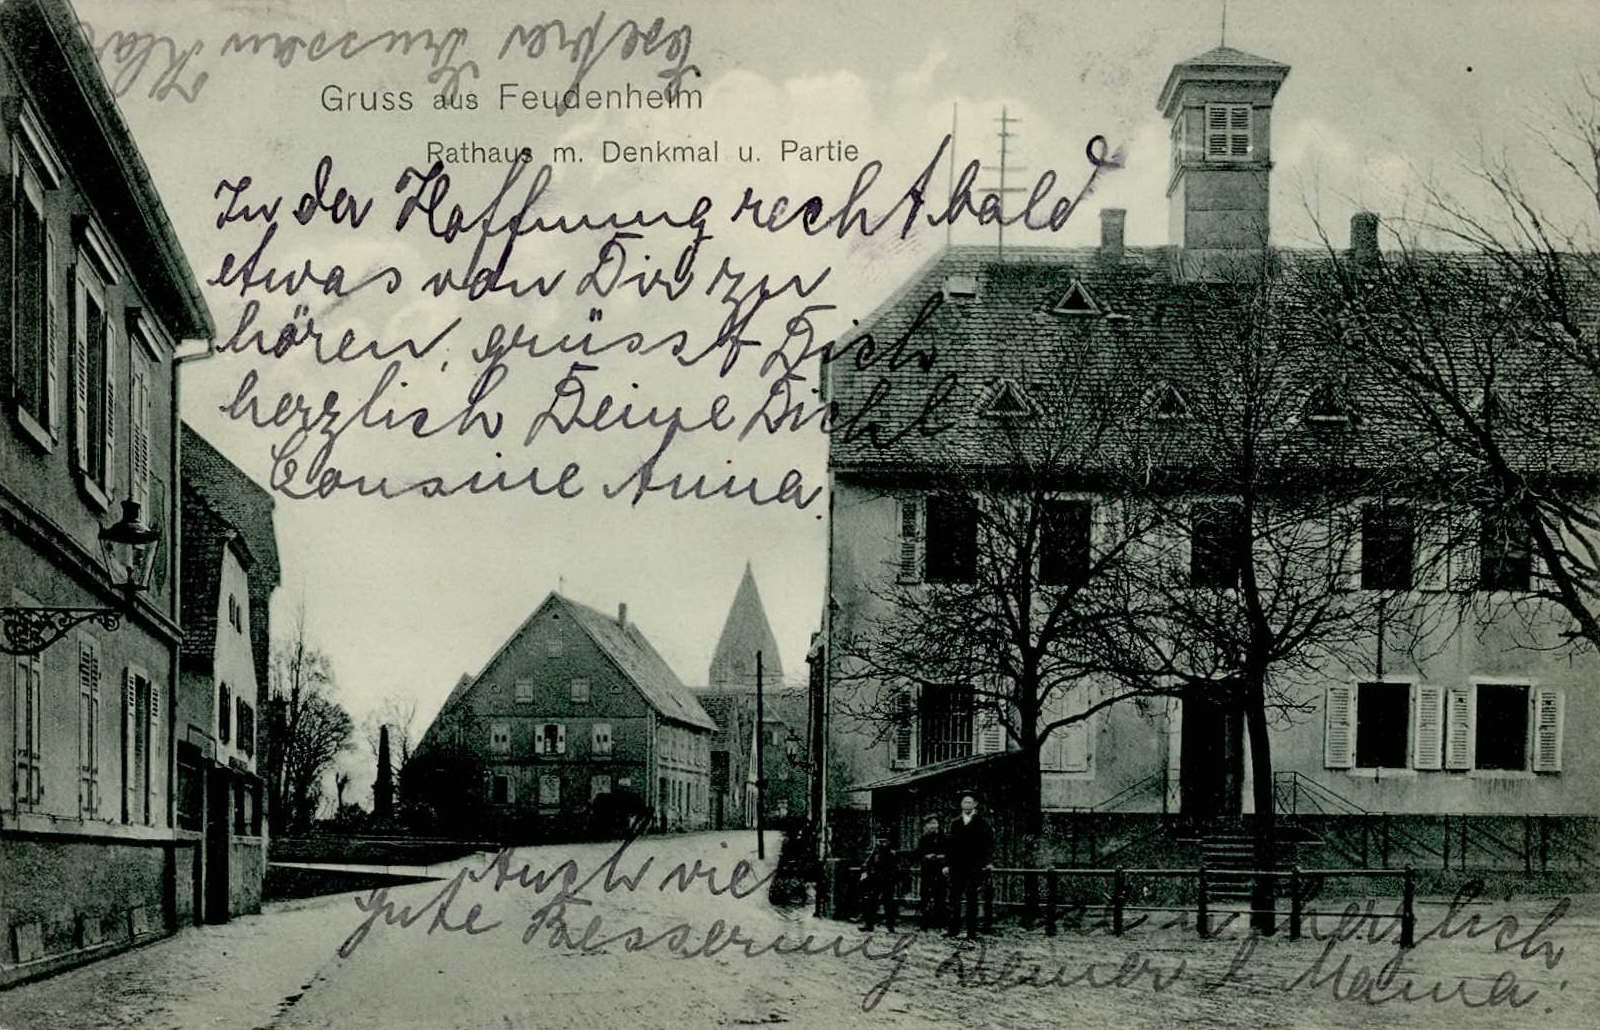 Gruss aus Feudenheim
Rathaus m. Denkmal u. Partie
In der Hoffnung recht bald
etwas von Dir zu
hören, grüsst Dich
herzlich Deine Dichl
Cousine Anna.
Auch viel
gute Besserung Deiner l. Mama.
u. herzlich